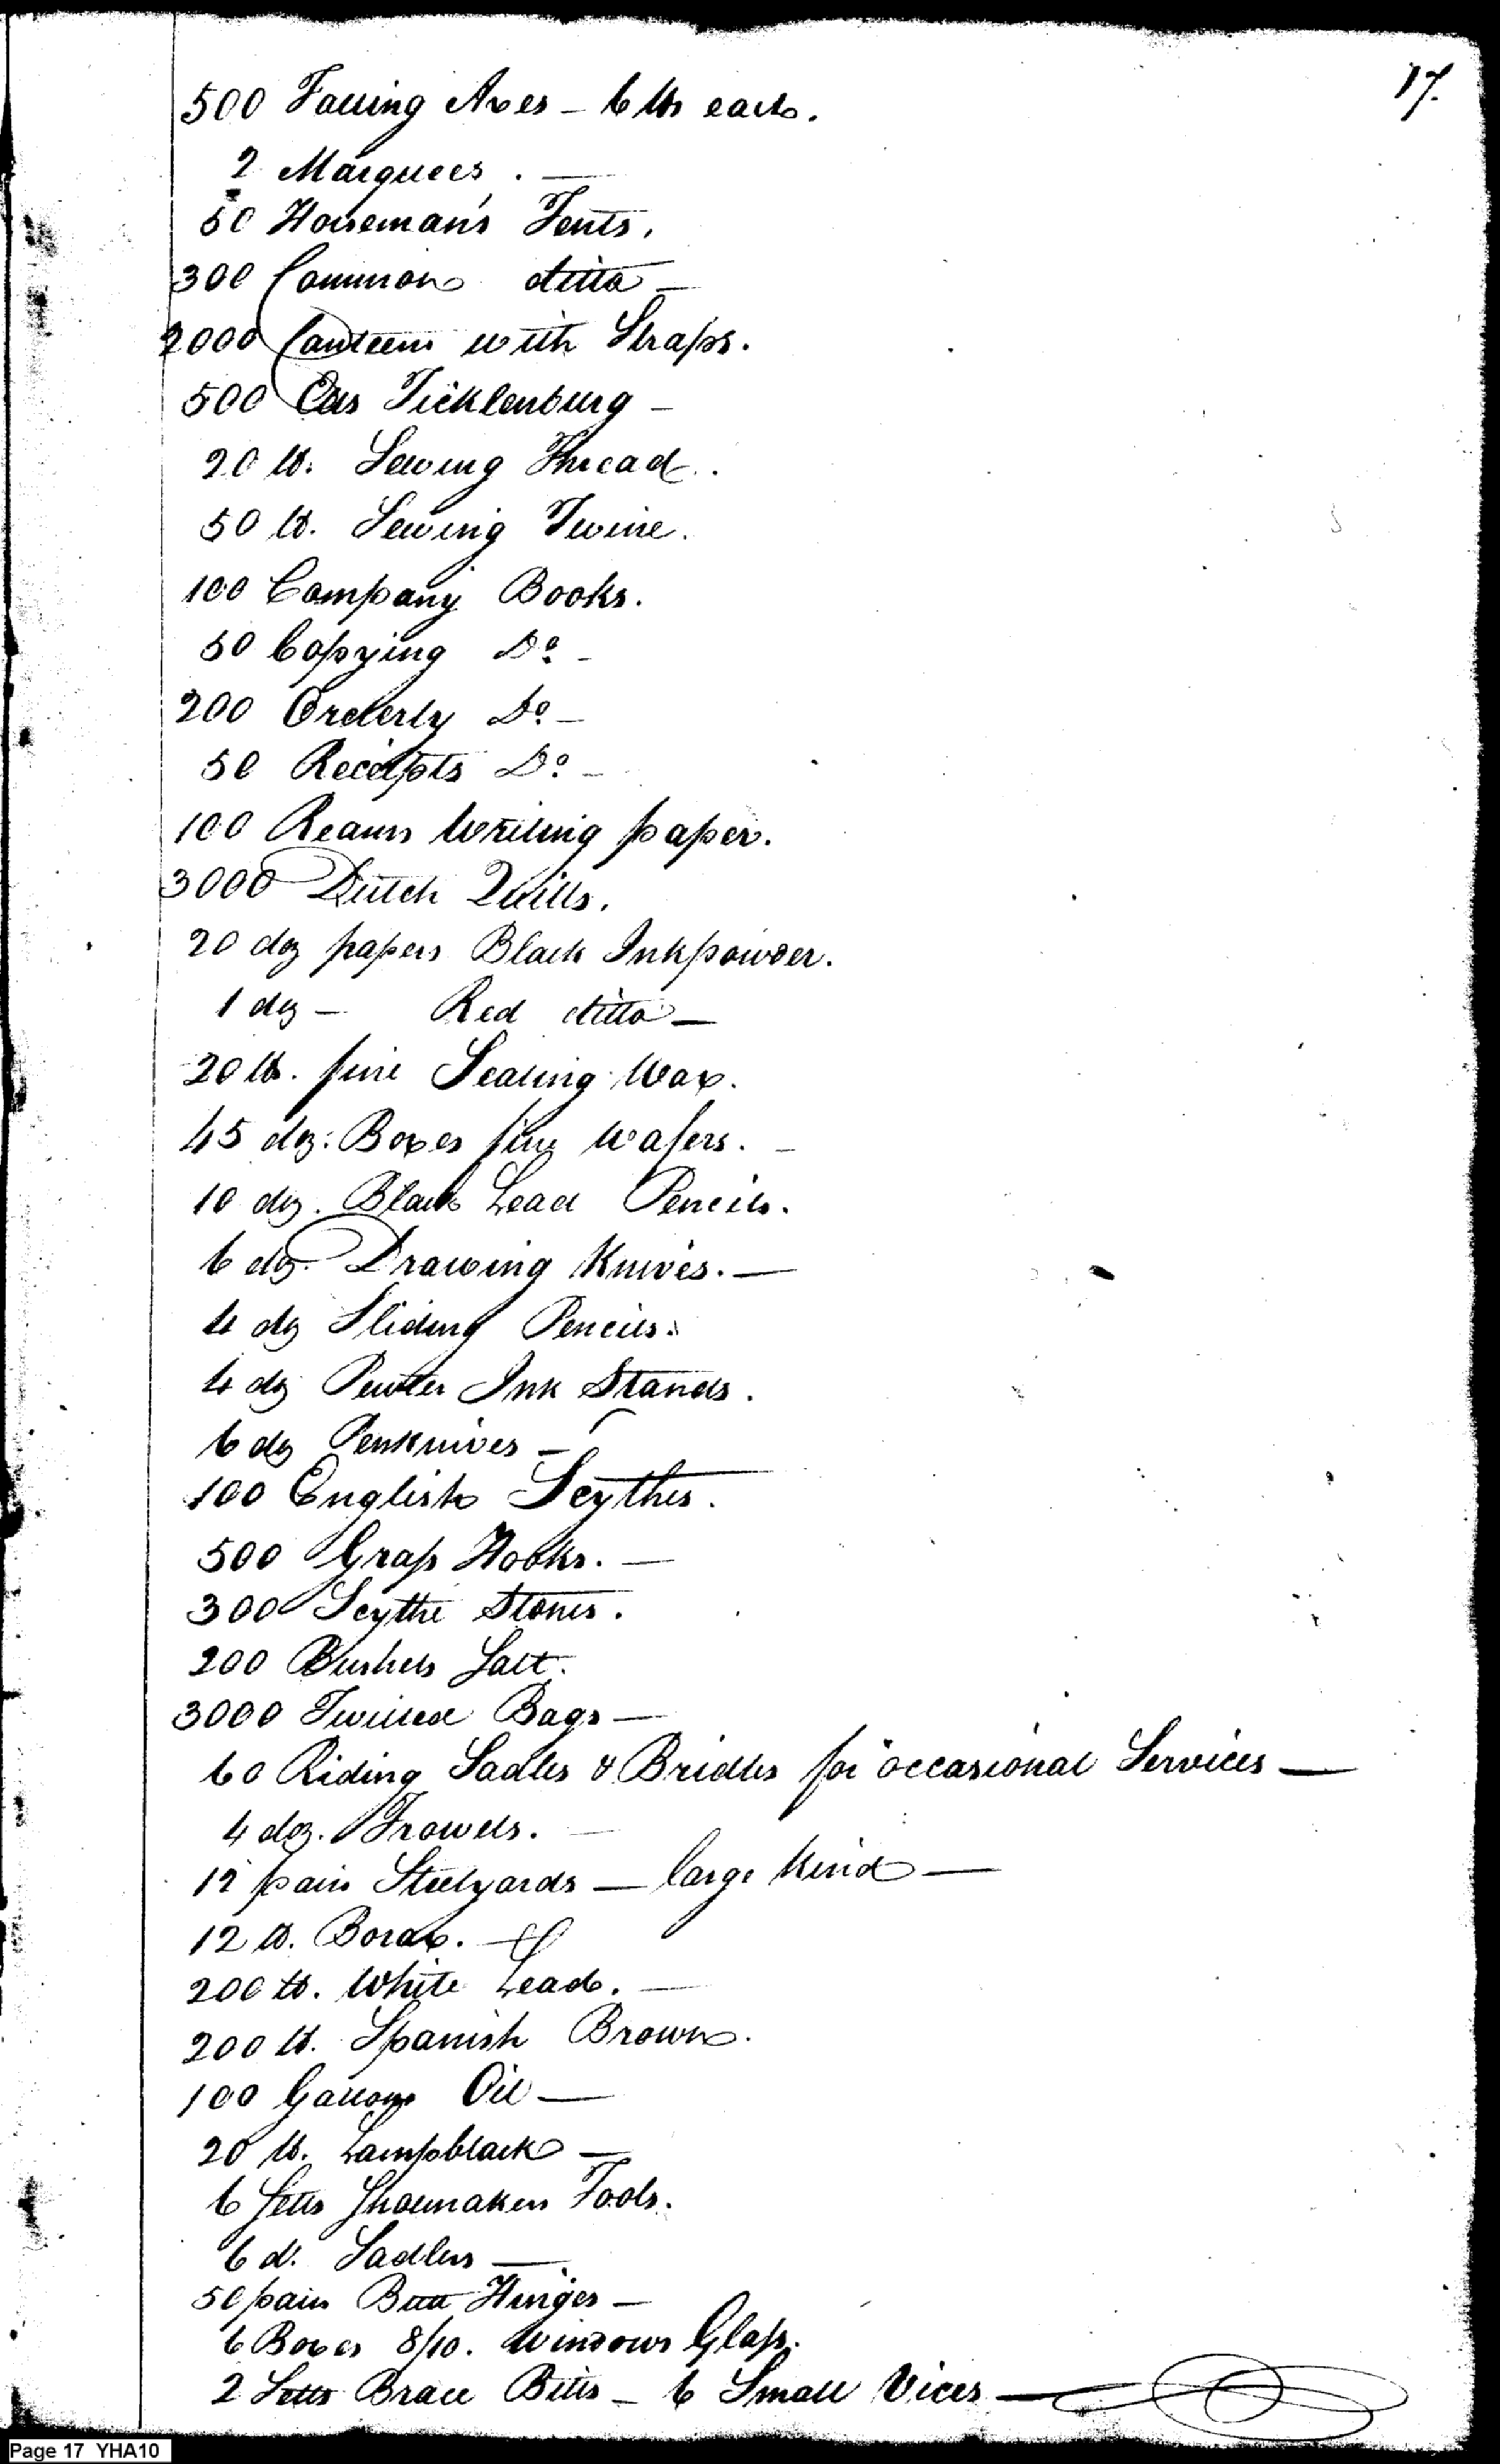 17.
500 Falling Axes - 6 lb each.
2 Marquees. —
50 Horseman's Tents,
300 Common ditto —
2000 Canteens with Straps.
500 Ells Ticklenburg —
20 lb. Sewing Thread.
50 lb. Sewing Twine.
100 Company Books.
50 Copying Do. —
200 Orderly Do. —
50 Receipts Do. —
100 Reams Writing paper.
3000 Dutch Quills.
20 doz papers Black Inkpowder.
1 doz — Red ditto —
20 lb. fine Sealing Wax.
45 doz: Boxes fine Wafers. —
10 doz. Black Lead Pencils.
6 doz. Drawing Knives. —
4 doz Sliding Pencils.
4 doz Pewter Ink Stands.
6 doz Penknives —
100 English Scythes.
500 Grass Hooks. —
300 Scythe Stones.
200 Bushels Salt.
3000 Twilled Bags —
60 Riding Sadles & Bridles for occasional Services —
4 doz. Trowels. —
12 pair Steelyards — large kind —
12 lb. Borax. —
200 lb. White Lead. —
200 lb. Spanish Brown.
100 Gallons Oil —
20 lb. Lampblack —
6 Setts Shoemakers Tools.
6 do. Sadlers —
50 pair Butt Hinges —
6 Boxes 8/10. Windows Glass.
2 Setts Brace Bitts — 6 Small Vices —
Page 17 YHA10